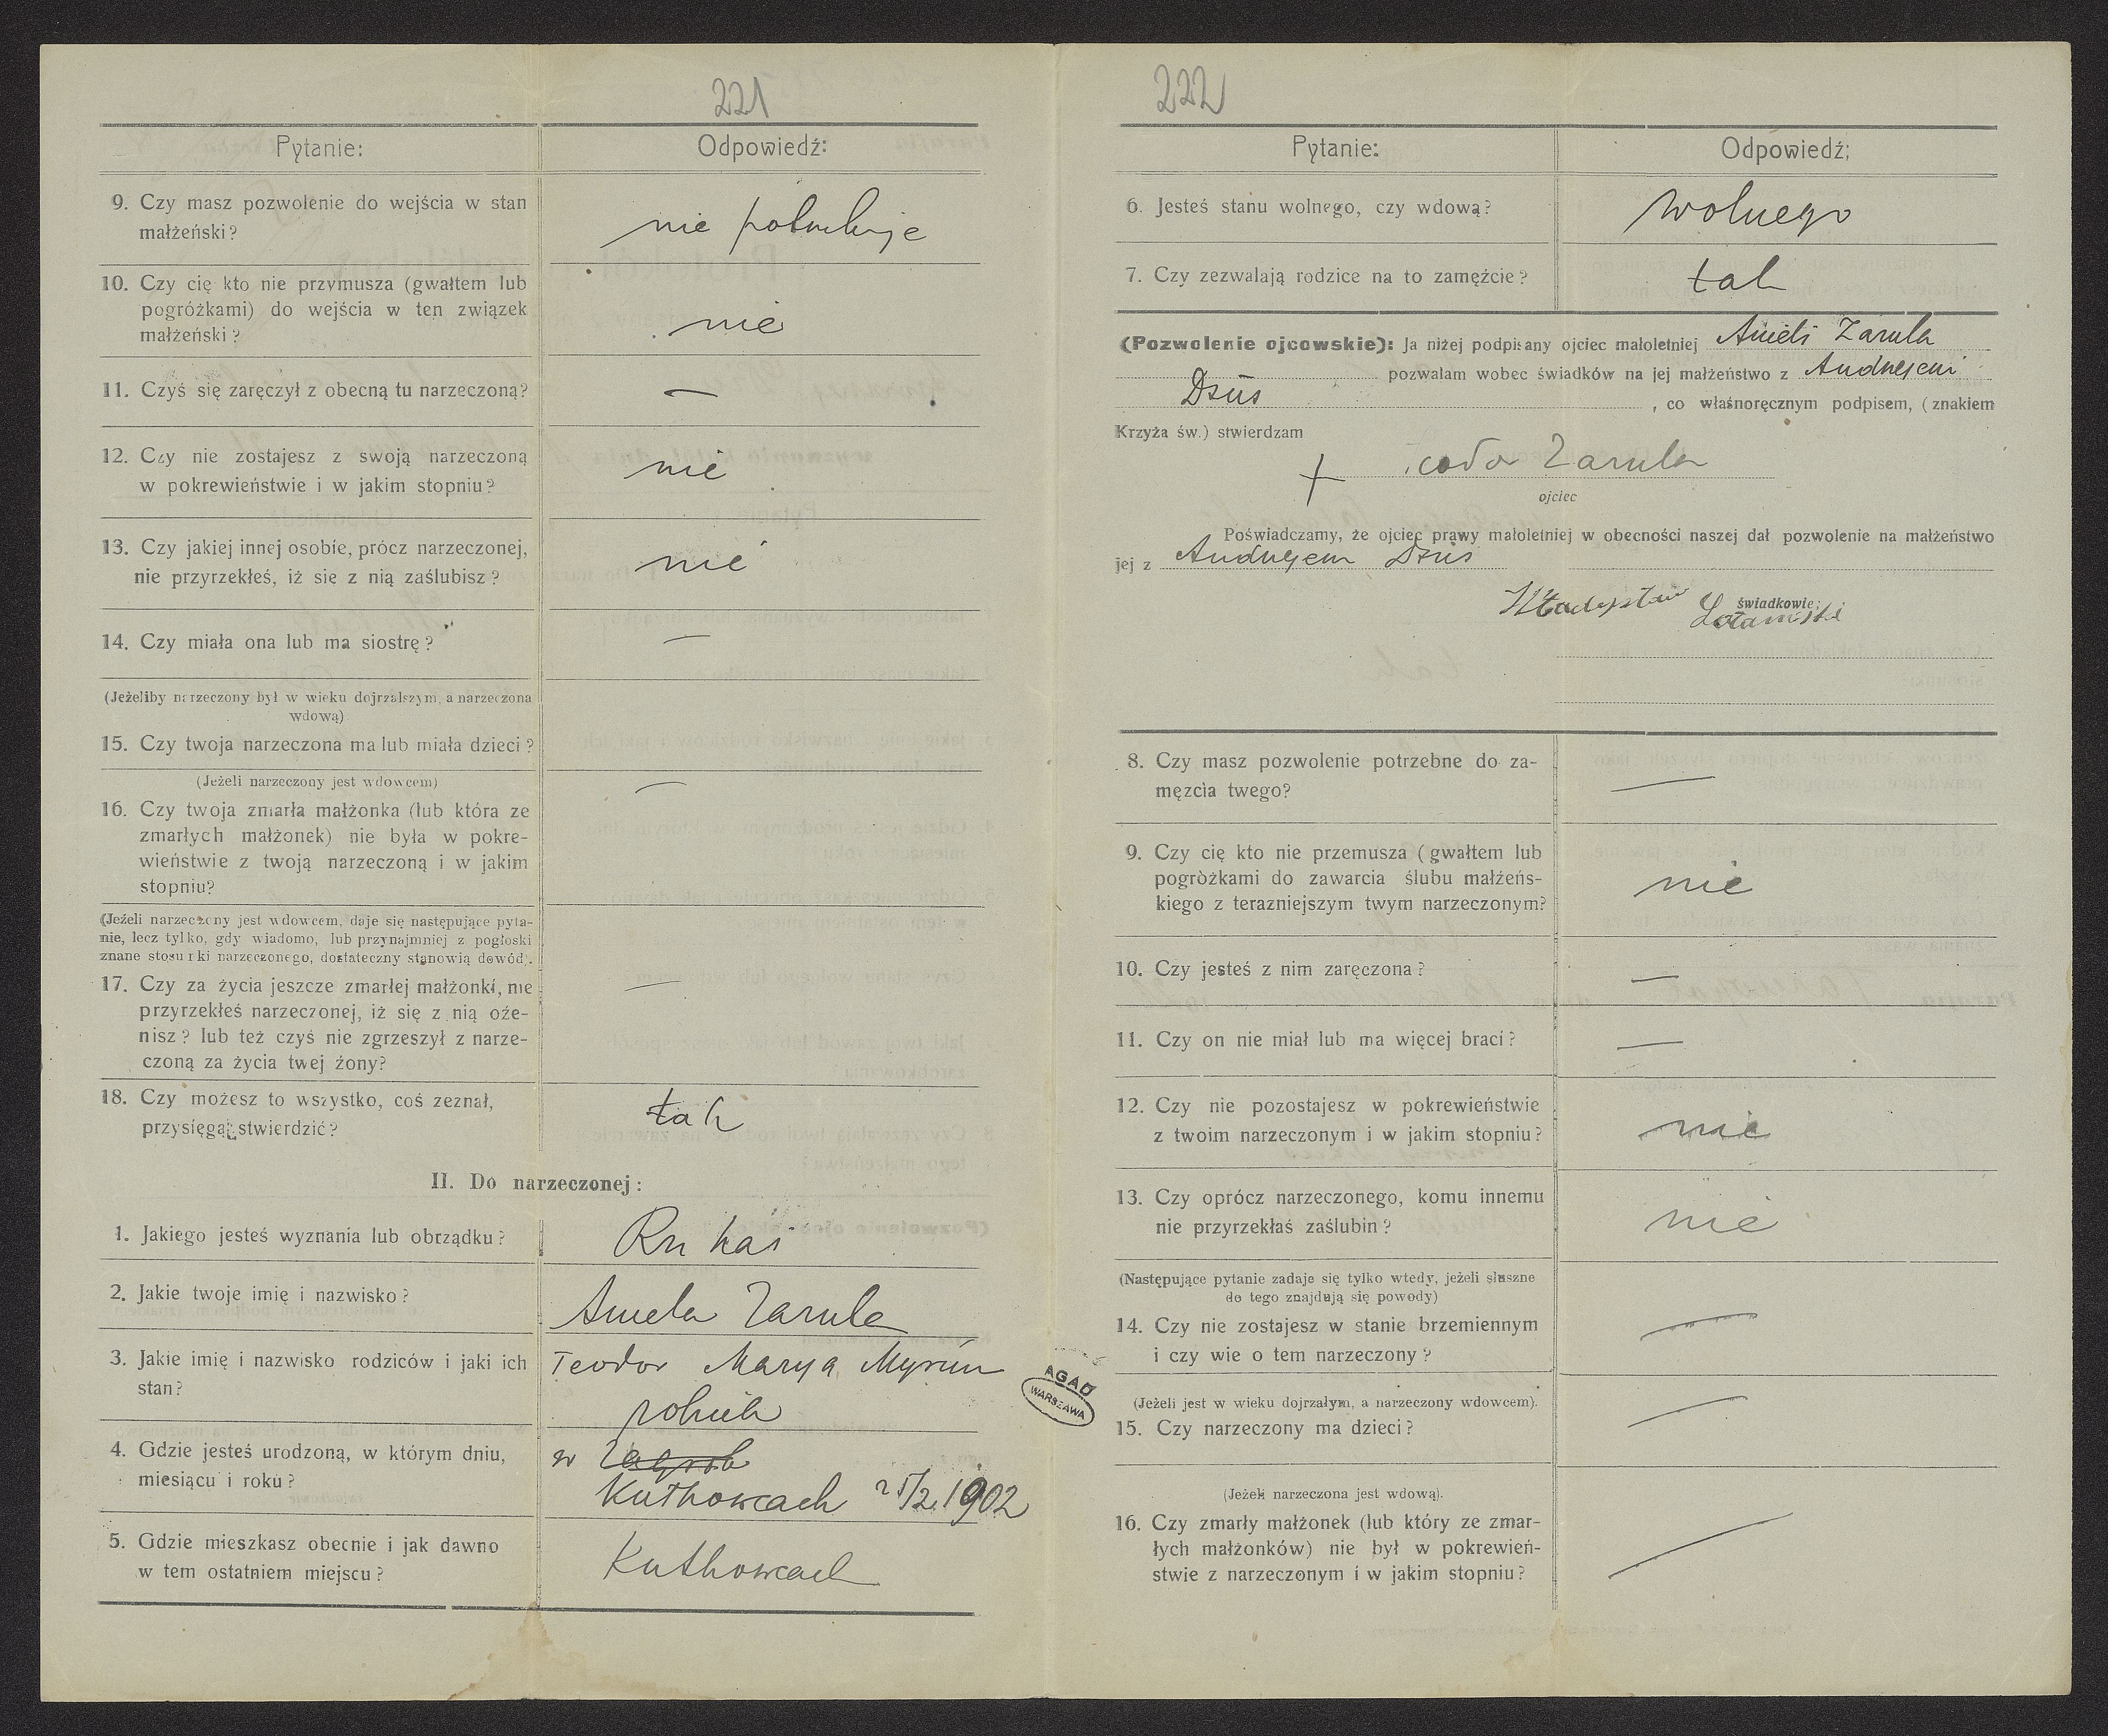 221
Pytanie: Odpowiedź:
9. Czy masz pozwolenie do wejścia w stan
małżeński?
nie potrebuje
10. Czy cię kto nie przymusza (gwałtem lub
pogróżkami) do wejścia w ten związek
małżeński?
nie
11. Czyś się zaręczył z obecną tu narzeczoną? —
12. Czy nie zostajesz z swoją narzeczoną
w pokrewieństwie i w jakim stopniu?
nie
13. Czy jakiej innej osobie, prócz narzeczonej,
nie przyrzekłeś, iż się z nią zaślubisz?
nie
14. Czy miała ona lub ma siostrę? —
(Jeżeliby narzeczony był w wieku dojrzalszym, a narzeczona
wdową)
15. Czy twoja narzeczona ma lub miała dzieci?
(Jeżeli narzeczony jest wdowcem) —
16. Czy twoja zmarła małżonka (lub która ze
zmarłych małżonek) nie była w pokre-
wieństwie z twoją narzeczoną i w jakim
stopniu?
(Jeżeli narzeczony jest wdowcem, daje się następujące pyta-
nie, lecz tylko, gdy wiadomo, lub przynajmniej z pogłoski
znane stosunki narzeczonego, dostateczny stanowią dowód).
17. Czy za życia jeszcze zmarłej małżonki, nie —
przyrzekłeś narzeczonej, iż się z nią oże-
nisz? lub też czyś nie zgrzeszył z narze-
czoną za życia twej żony?
18. Czy możesz to wszystko, coś zeznał,
przysięgą stwierdzić?
tak
II. Do narzeczonej:
1. Jakiego jesteś wyznania lub obrządku?
2. Jakie twoje imię i nazwisko? Aniela Zarula
3. Jakie imię i nazwisko rodziców i jaki ich
stan?
Teodor Marya
rolnik
4. Gdzie jesteś urodzoną, w którym dniu,
miesiącu i roku?
w
Kutkowcach 25/2 1902
5. Gdzie mieszkasz obecnie i jak dawno
w tem ostatniem miejscu?
Kutkowcach
AGAD
WARSZAWA
222
Pytanie: Odpowiedź;
6. Jesteś stanu wolnego, czy wdową? wolnego
7. Czy zezwalają rodzice na to zamężcie? tak
(Pozwolenie ojcowskie): Ja niżej podpisany ojciec małoletniej Anieli Zarula
pozwalam wobec świadków na jej małżeństwo z Andrejem
Dzus , co własnoręcznym podpisem, (znakiem
Krzyża św.) stwierdzam
+ Zarula
ojciec
Poświadczamy, że ojciec prawy małoletniej w obecności naszej dał pozwolenie na małżeństwo
jej z Andrejem Dzus
świadkowie:
Władysław
8. Czy masz pozwolenie potrzebne do za-
męzcia twego?
—
9. Czy cię kto nie przemusza (gwałtem lub
pogróżkami do zawarcia ślubu małżeńs-
kiego z terazniejszym twym narzeczonym?
nie
10. Czy jesteś z nim zaręczona? —
11. Czy on nie miał lub ma więcej braci? —
12. Czy nie pozostajesz w pokrewieństwie
z twoim narzeczonym i w jakim stopniu?
nie
13. Czy oprócz narzeczonego, komu innemu
nie przyrzekłaś zaślubin?
nie
(Następujące pytanie zadaje się tylko wtedy, jeżeli słuszne
do tego znajdują się powody)
14. Czy nie zostajesz w stanie brzemiennym
i czy wie o tem narzeczony?
—
(Jeżeli jest w wieku dojrzałym, a narzeczony wdowcem).
15. Czy narzeczony ma dzieci? —
(Jeżeli narzeczona jest wdową).
16. Czy zmarły małżonek (lub który ze zmar-
łych małżonków) nie był w pokrewień-
stwie z narzeczonym i w jakim stopniu?
—